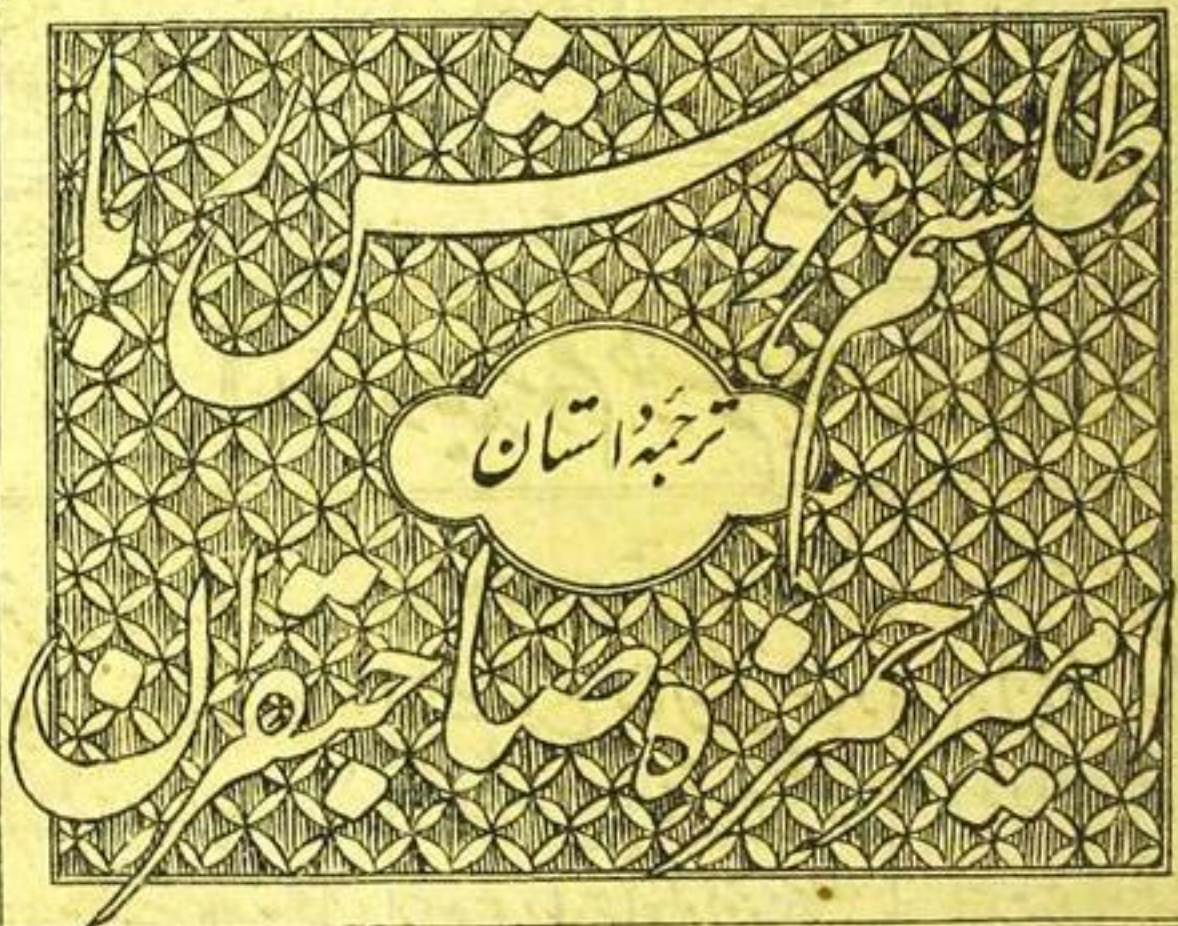 طلسم ہوش ربا
ترجمۂ داستان
امیر حمزہ صاحبقران